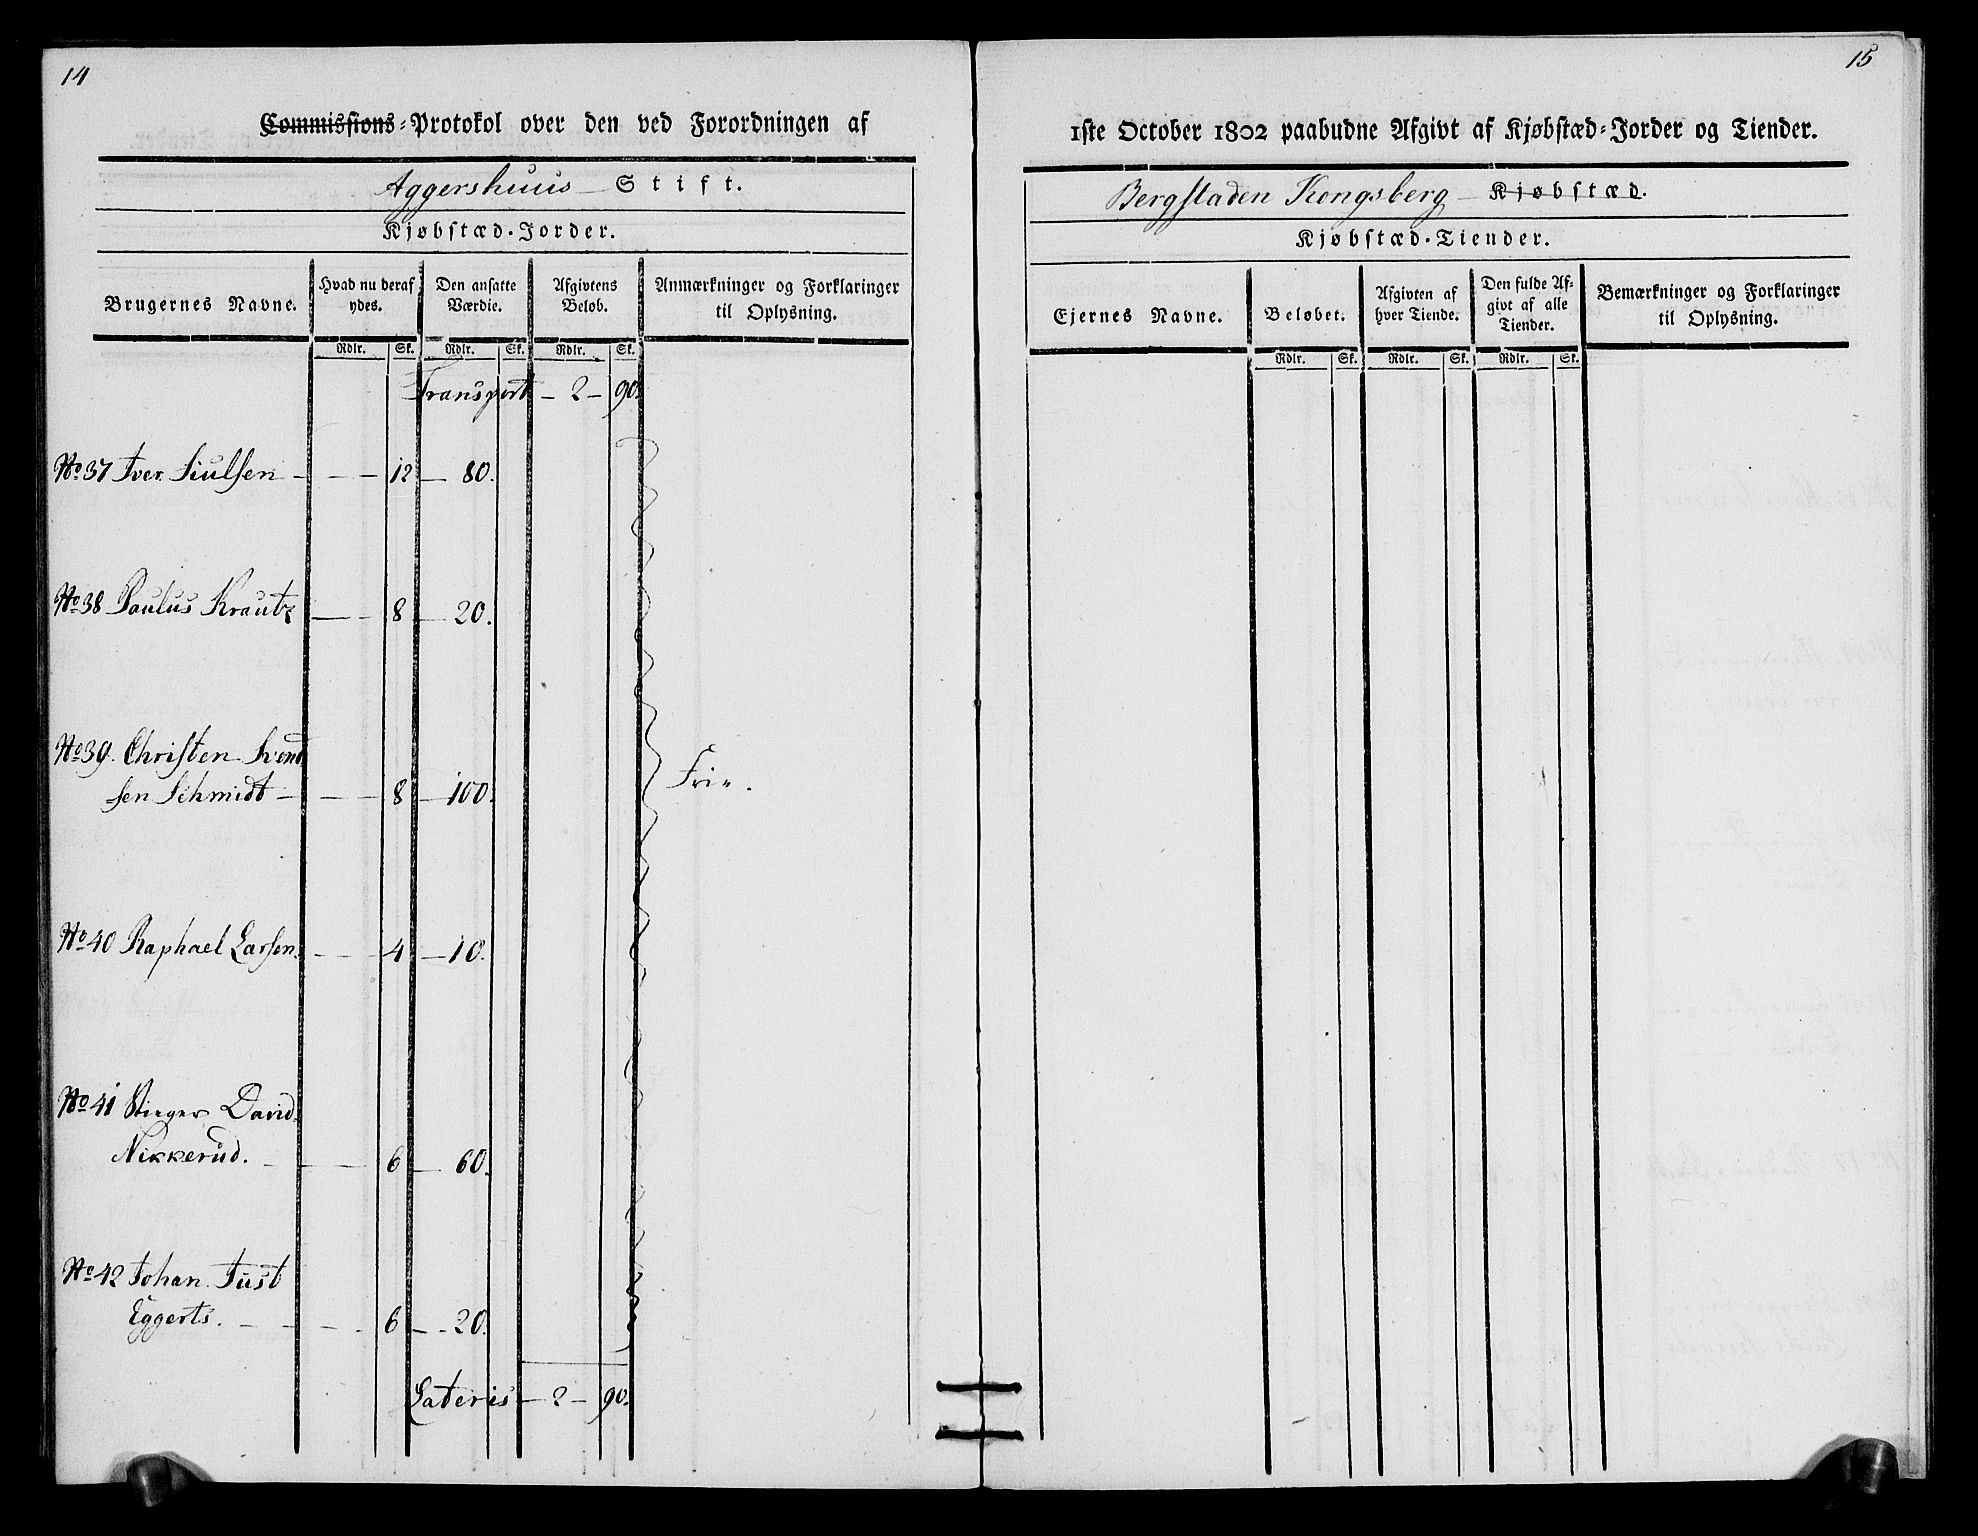 14
Commissions-Protokol over den ved Forordningen af
Aggershuus Stift.
Kjøbstæd-Jorder.
Brugernes Navne.
Hvad nu deraf
ydes.
Den ansatte
Værdie.
Afgivtens
Beløb.
Anmærkninger og Forklaringer
til Oplysning.
Rdlr. Sk. Rdlr. Sk. Rdlr. Sk.
Transport - 2 - 90.
No 37 Iver Siulsen - - - 12 - 80.
No 38 Paulus Krautz - - 8 - 20.
No 39. Christen Svend
sen Schmidt - - - 8 - 100.
Frie.
No 40 Raphael Larsen. - - 4 - 10.
No 41 Stieger David
Nikkerud. - - - 6 - 60.
No 42 Johan Just
Eggerts. - - - - 6 - - 20.
Lateris - 2 - 90.
15
1ste October 1802 paabudne Afgivt af Kjøbstæd-Jorder og Tiender.
Bergstaden Kongsberg - Kjøbstæd.
Kjøbstæd-Tiender.
Ejernes Navne.
Beløbet.
Afgivten af
hver Tiende.
Den fulde Af-
givt af alle
Tiender.
Bemærkninger og Forklaringer
til Oplysning.
Rdlr. Sk. Rdlr. Sk. Rdlr. Sk.